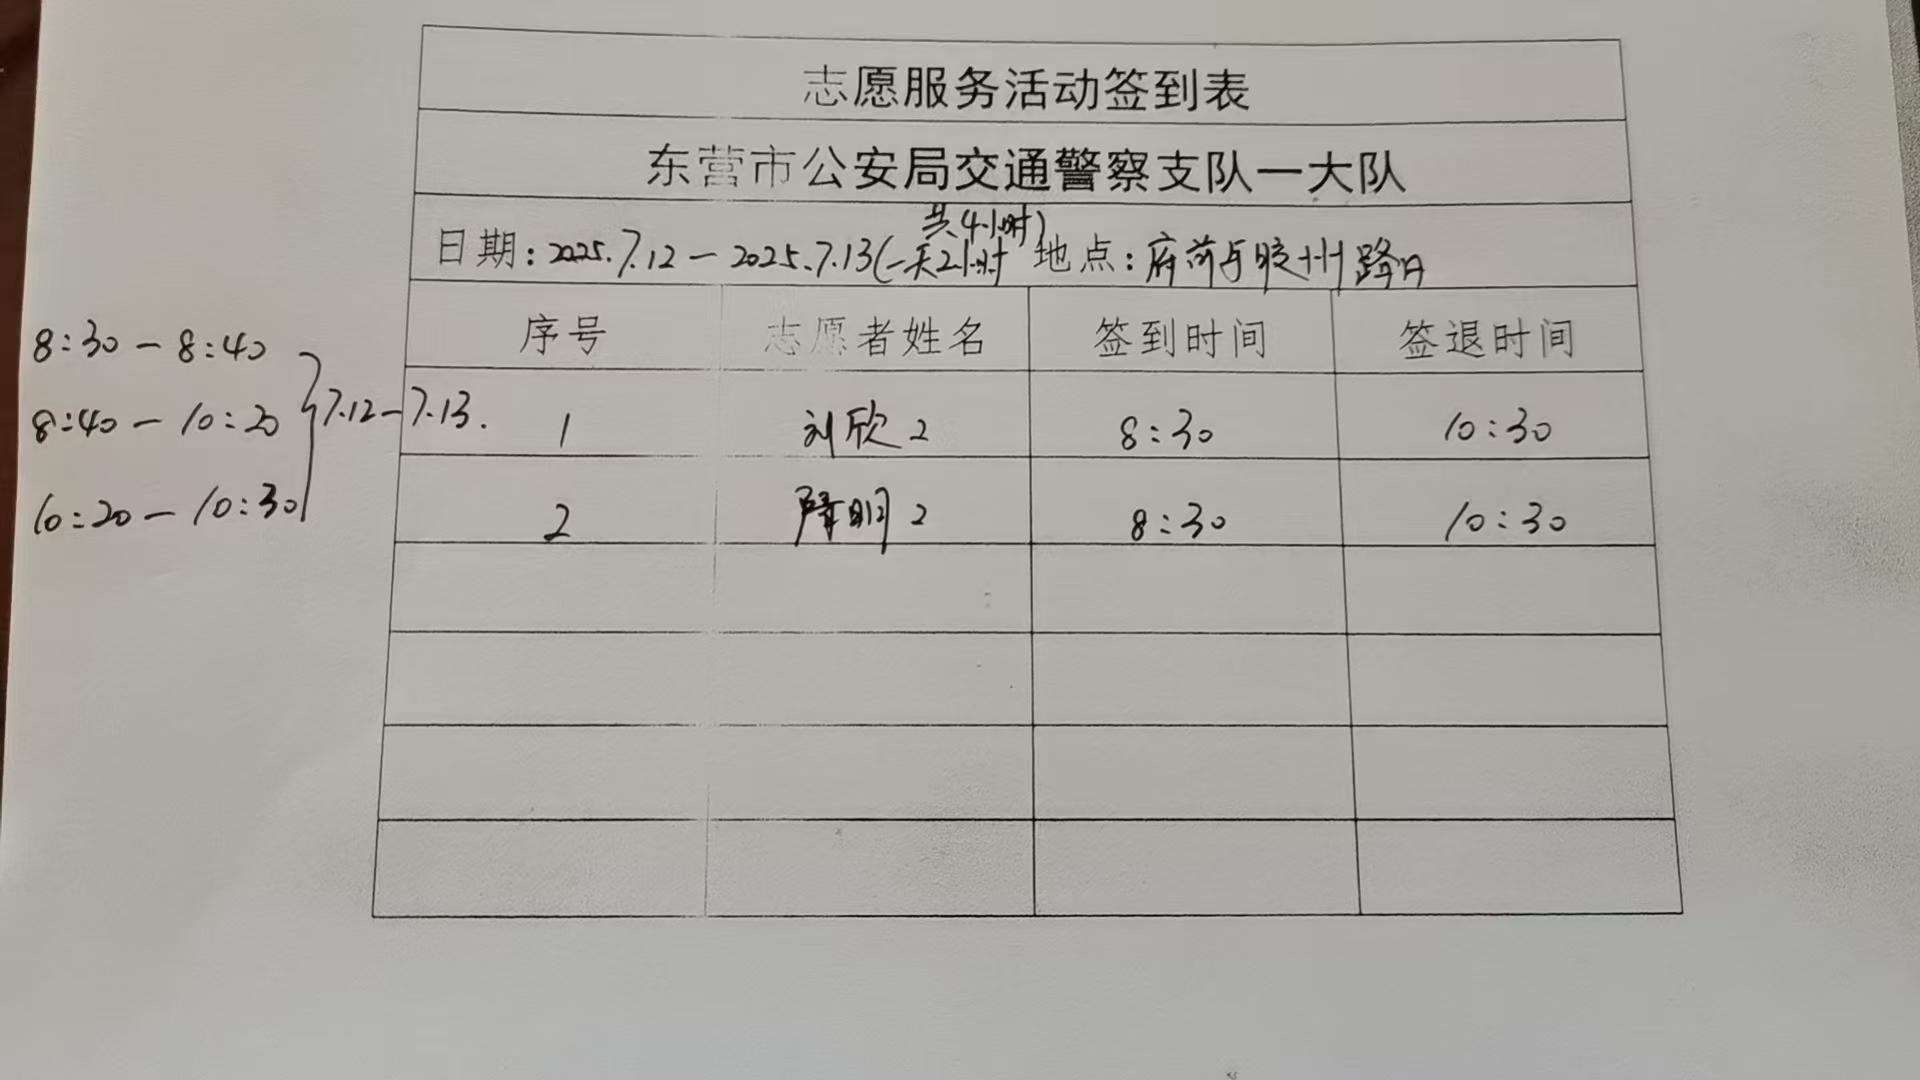 志愿服务活动签到表
东营市公安局交通警察支队一大队
共4小时)
日期:2025.7.12-2025.7.13(一天2小时 地点:府前与胶州路口
序号 志愿者姓名 签到时间 签退时间
8:30-8:40
8:40-10:20
10:20-10:30
7.12-7.13.
1 刘欣2 8:30 10:30
2 明2 8:30 10:30